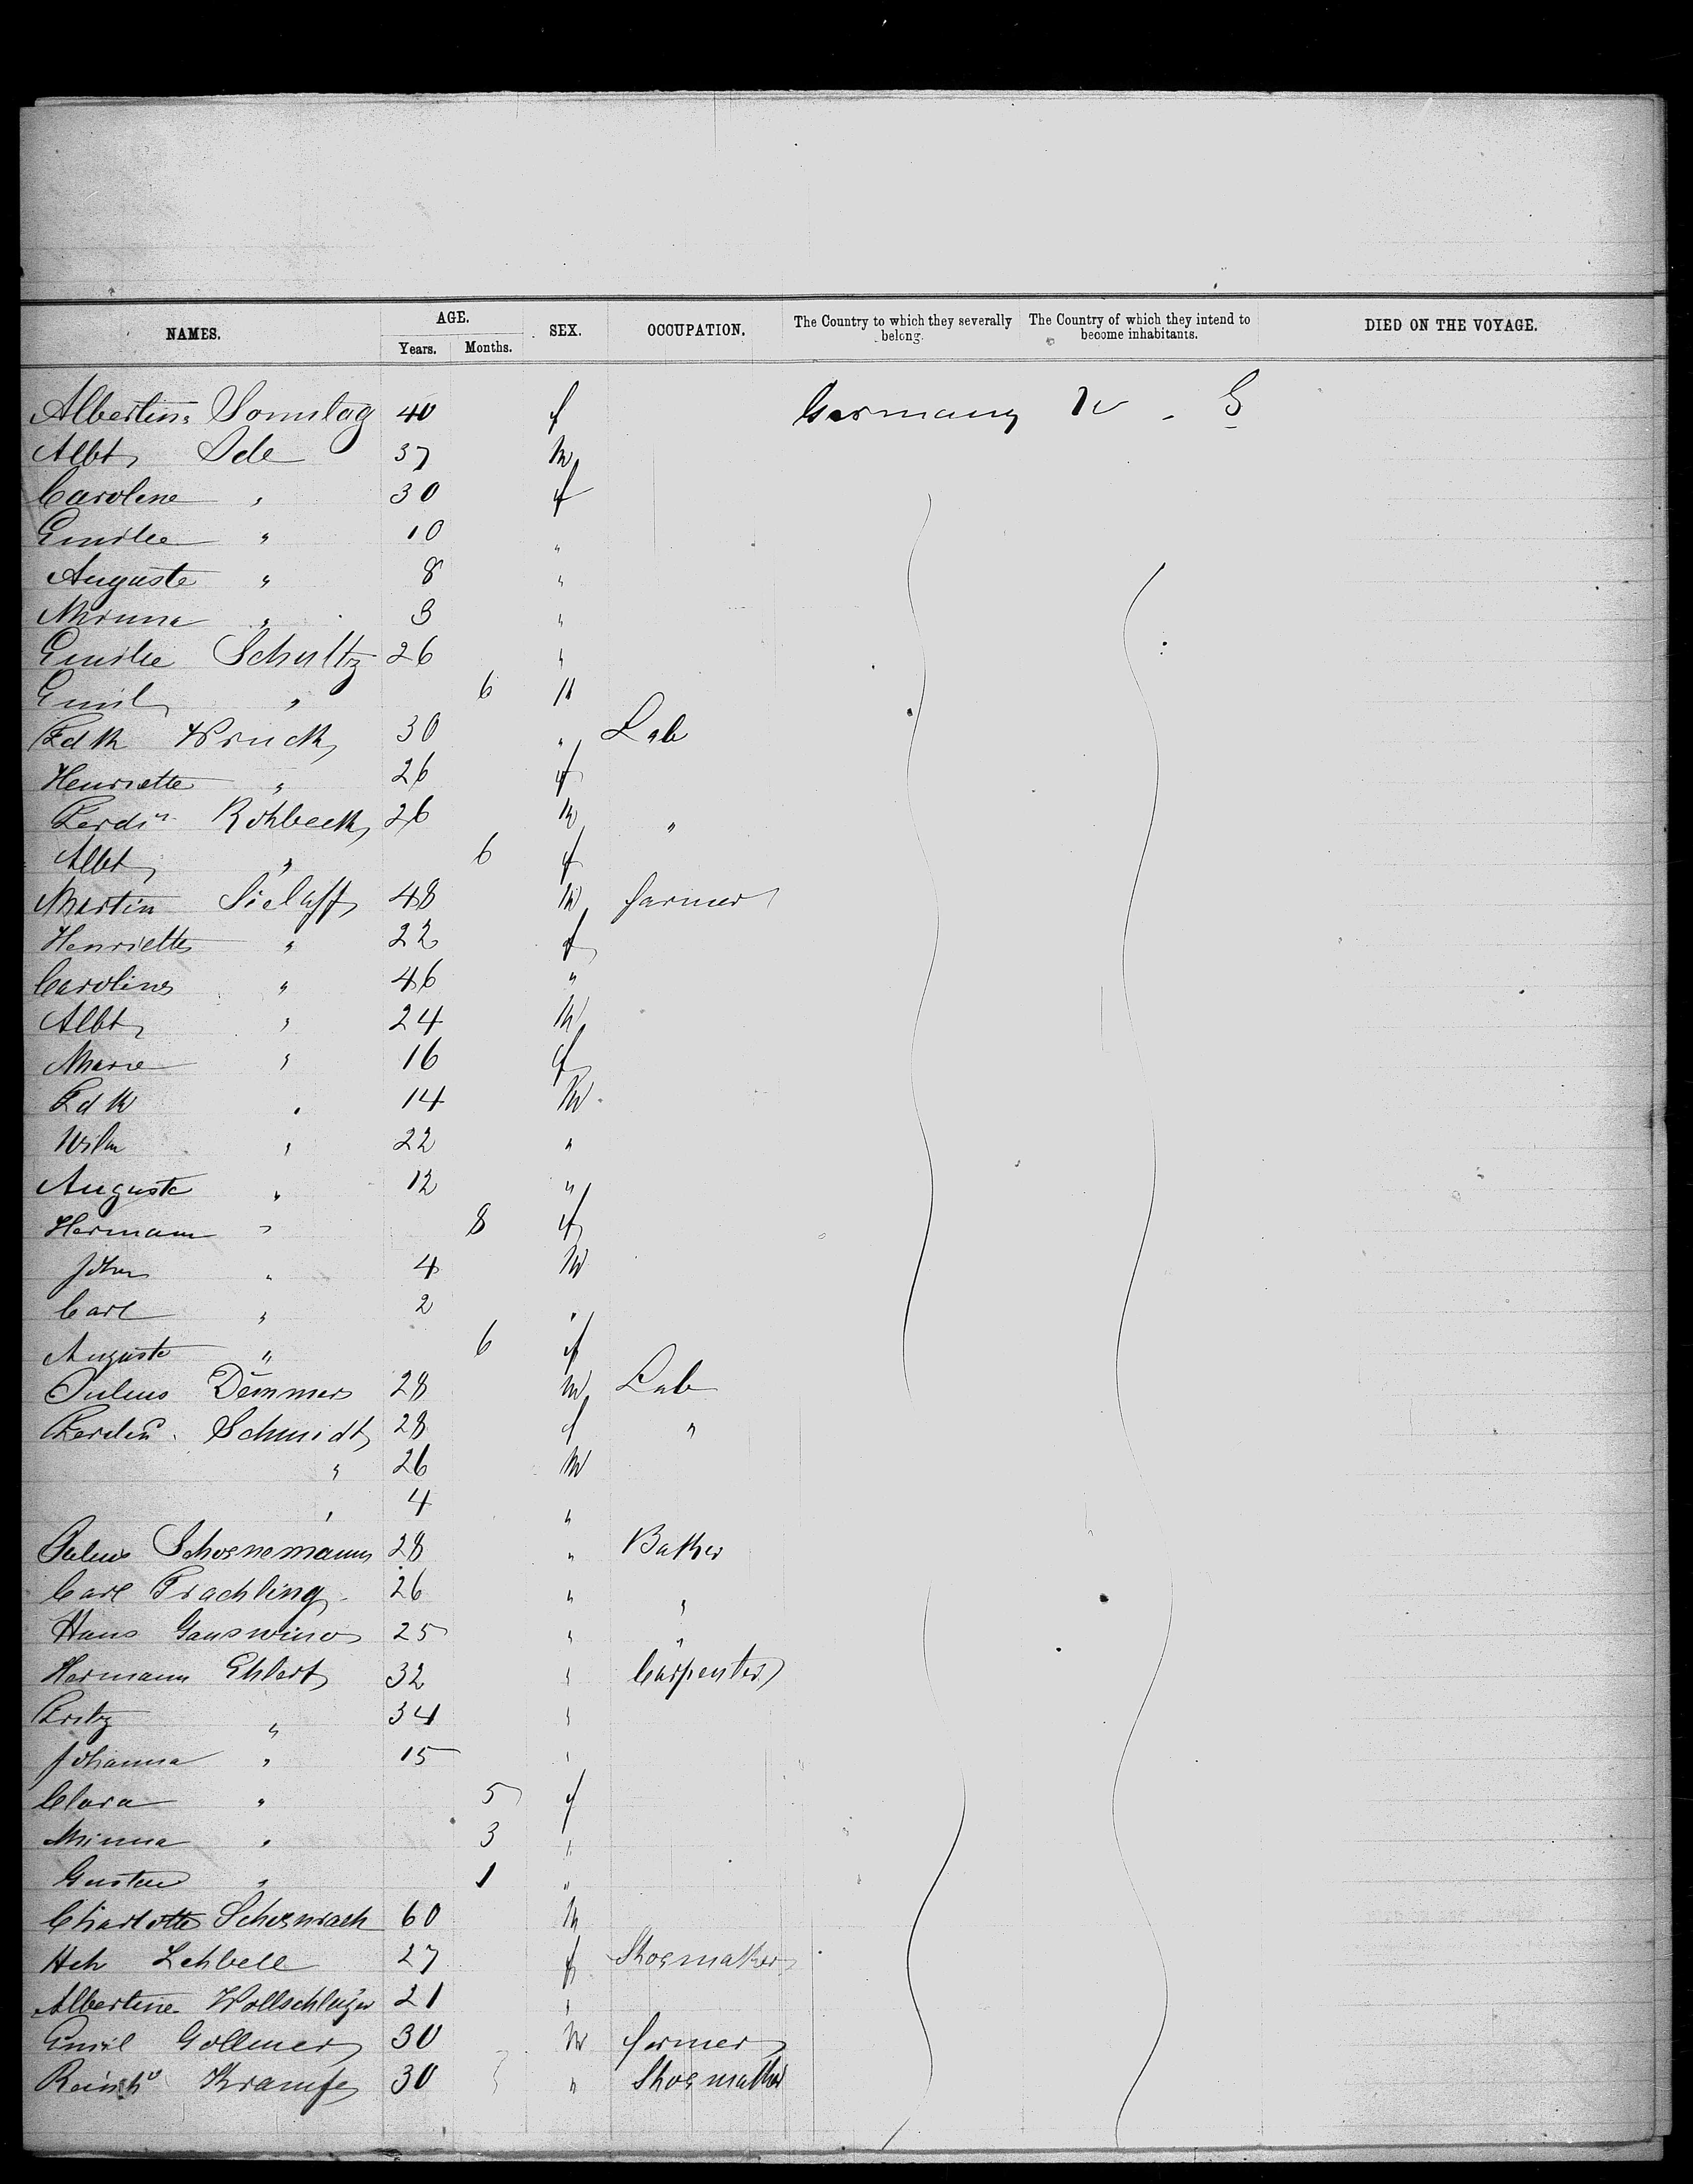 NAMES. AGE. SEX. OCCUPATION. The Country to which they severally belong. The Country of which they intend to become inhabitants. DIED ON THE VOYAGE.
Years. Months.
Albertine Sonntag 40 f Germany U. S
Albt Ode 37 m
Caroline " 30 f
Emilie " 10 "
Auguste " 8 "
Minna " 3 "
Emilie Schultz 26 "
Emil " 6 M
Fdk Wruck 30 " Lab
Henriette " 26 f
Ferdin Rohbeck 26 m "
Albt " 6 f
Martin Sielaff 48 m farmer
Henriette " 22 f
Caroline " 46 "
Albt " 24 m
Marie " 16 f
Fdk " 14 m
Wilm " 22 "
Auguste " 12 "
Hermann " 8 f
John " 4 m
Carl " 2 "
Auguste " 6 f
Julius Demmer 28 m Lab
Ferdin. Schmidt 28 f "
" 26 m
" 4 "
Julius Schoenemann 28 " Baker
Carl Prachling 26 " "
Hans 25 " "
Hermann Ehlert 32 " Carpenter
Fritz " 34 "
Johanna " 15 "
Clara " 5 f
Minna " 3 "
Gustav " 1 "
Charlotte Schoenrack 60 m
Hch Lehbell 27 f Shoemaker
Albertine Wollschläger 21 "
Emil Gollmer 30 m farmer
Reinhd Krampe 30 " Shoemaker